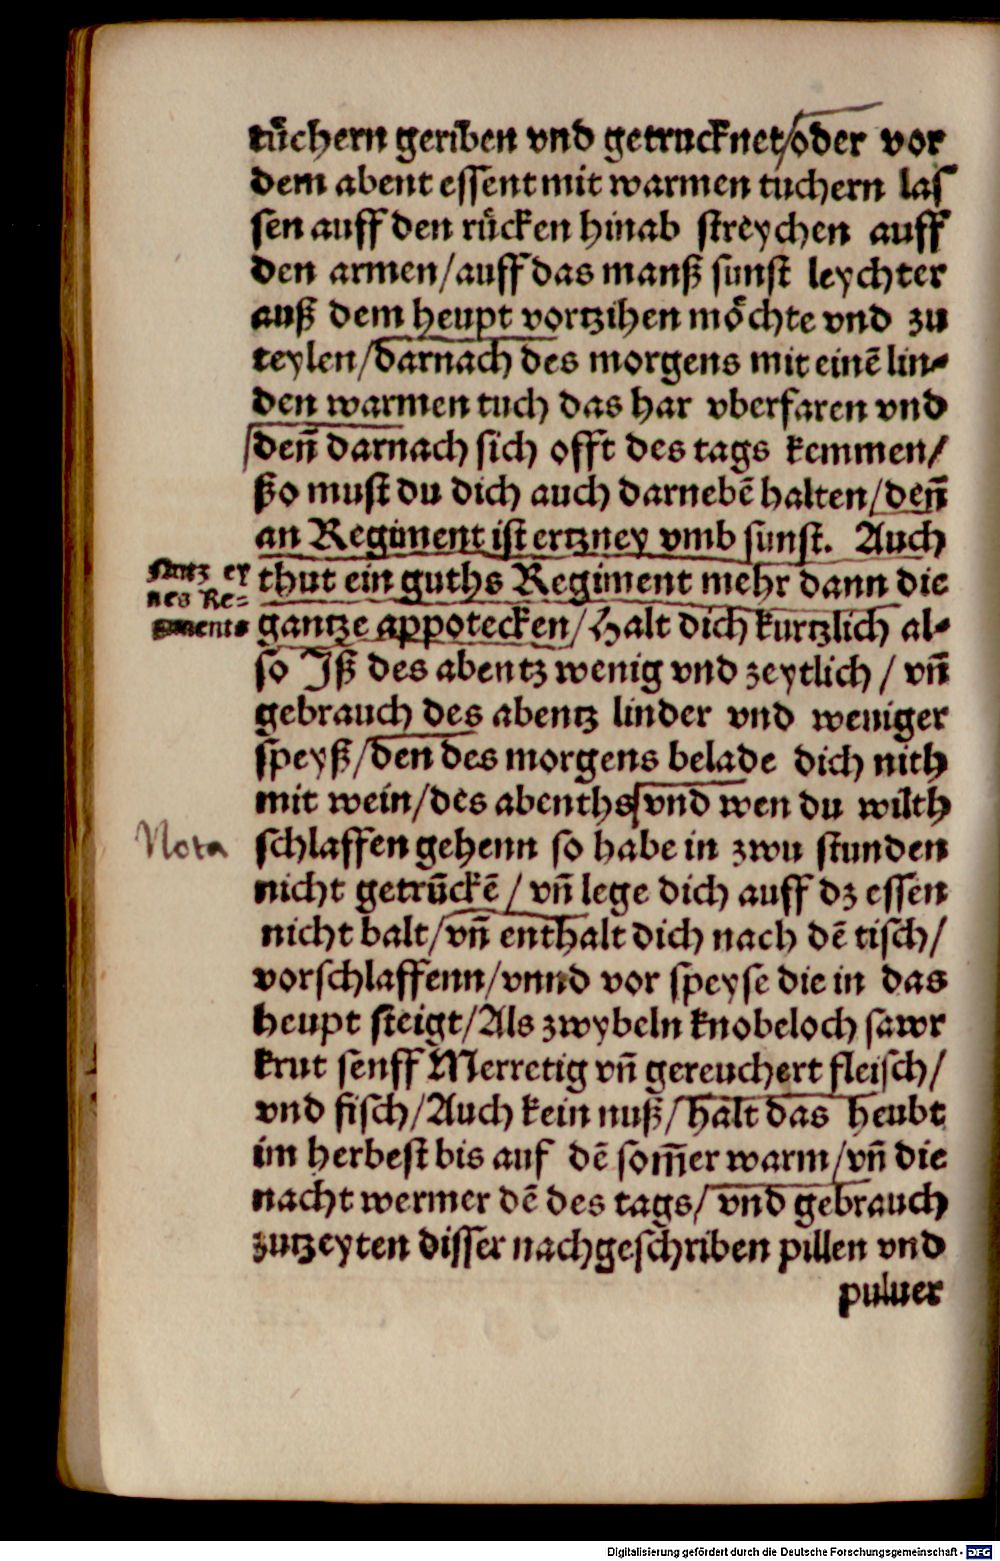 tuͤchern geriben vnd getrucknet/oder vor
dem abent essent mit warmen tuchern las
sen auff den ruͤcken hinab streychen auff
den armen/auff das manß sunst leychter
auß dem heupt vortzihen moͤchte vnd zu
teylen/darnach des morgens mit einē lin-
den warmen tuch das har vberfaren vnd
deñ darnach sich offt des tags kemmen/
ßo must du dich auch darnebē halten/deñ
an Regiment ist ertzney vmb sunst. Auch
Nutz ey
nes Re-
giments
thut ein guths Regiment mehr dann die
gantze appotecken/Halt dich kurtzlich al-
so Iß des abentz wenig vnd zeytlich/vñ
gebrauch des abentz linder vnd weniger
speyß/den des morgens belade dich nith
mit wein/des abenths vnd wen du wilth
Nota
schlaffen gehenn so habe in zwu stunden
nicht getrūckē/vñ lege dich auff dz essen
nicht balt/vñ enthalt dich nach dē tisch/
vorschlaffenn/vnnd vor speyse die in das
heupt steigt/Als zwybeln knobeloch sawr
krut senff Merretig vñ gereuchert fleisch/
vnd fisch/Auch kein nuß/halt das heubt
im herbest bis auf dē som̄er warm/vñ die
nacht wermer dē des tags/vnd gebrauch
zutzeyten disser nachgeschriben pillen vnd
puluer
Digitalisierung gefördert durch die Deutsche Forschungsgemeinschaft - DFG